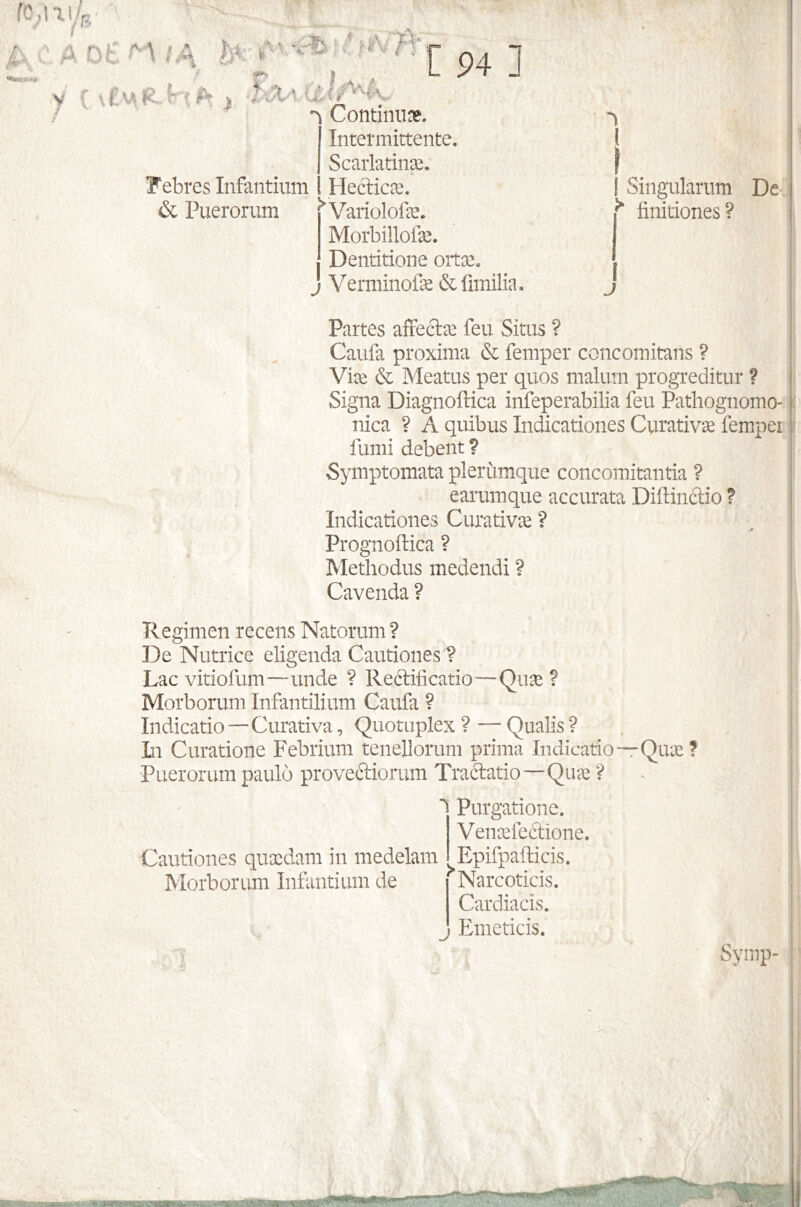 10,121/B
ACADEMIA
[ 94 ]
Continuæ.
Intermittente.
Scarlatinæ.
Febres Infantium Hecticæ. Singularum De-
& Puerorum Varioloſæ. finitiones ?
Morbilloſæ.
Dentitione ortæ.
Verminoſæ & ſimilia.
Partes affectæ ſeu Situs ?
Cauſa proxima & ſemper concomitans ?
Viæ & Meatus per quos malum progreditur ?
Signa Diagnoſtica inſeperabilia ſeu Pathognomo-
nica ? A quibus Indicationes Curativæ ſemper
ſumi debent ?
Symptomata plerùmque concomitantia ?
earumque accurata Diſtinctio ?
Indicationes Curativæ ?
Prognoſtica ?
Methodus medendi ?
Cavenda ?
Regimen recens Natorum ?
De Nutrice eligenda Cautiones ?
Lac vitioſum—unde ? Rectificatio—Quæ ?
Morborum Infantilium Cauſa ?
Indicatio—Curativa, Quotuplex ? — Qualis ?
In Curatione Febrium tenellorum prima Indicatio—Quæ ?
Puerorum paulò provectiorum Tractatio—Quæ ?
Purgatione.
Venæſectione.
Cautiones quædam in medelam Epiſpaſticis.
Morborum Infantium de Narcoticis.
Cardiacis.
Emeticis.
Symp-